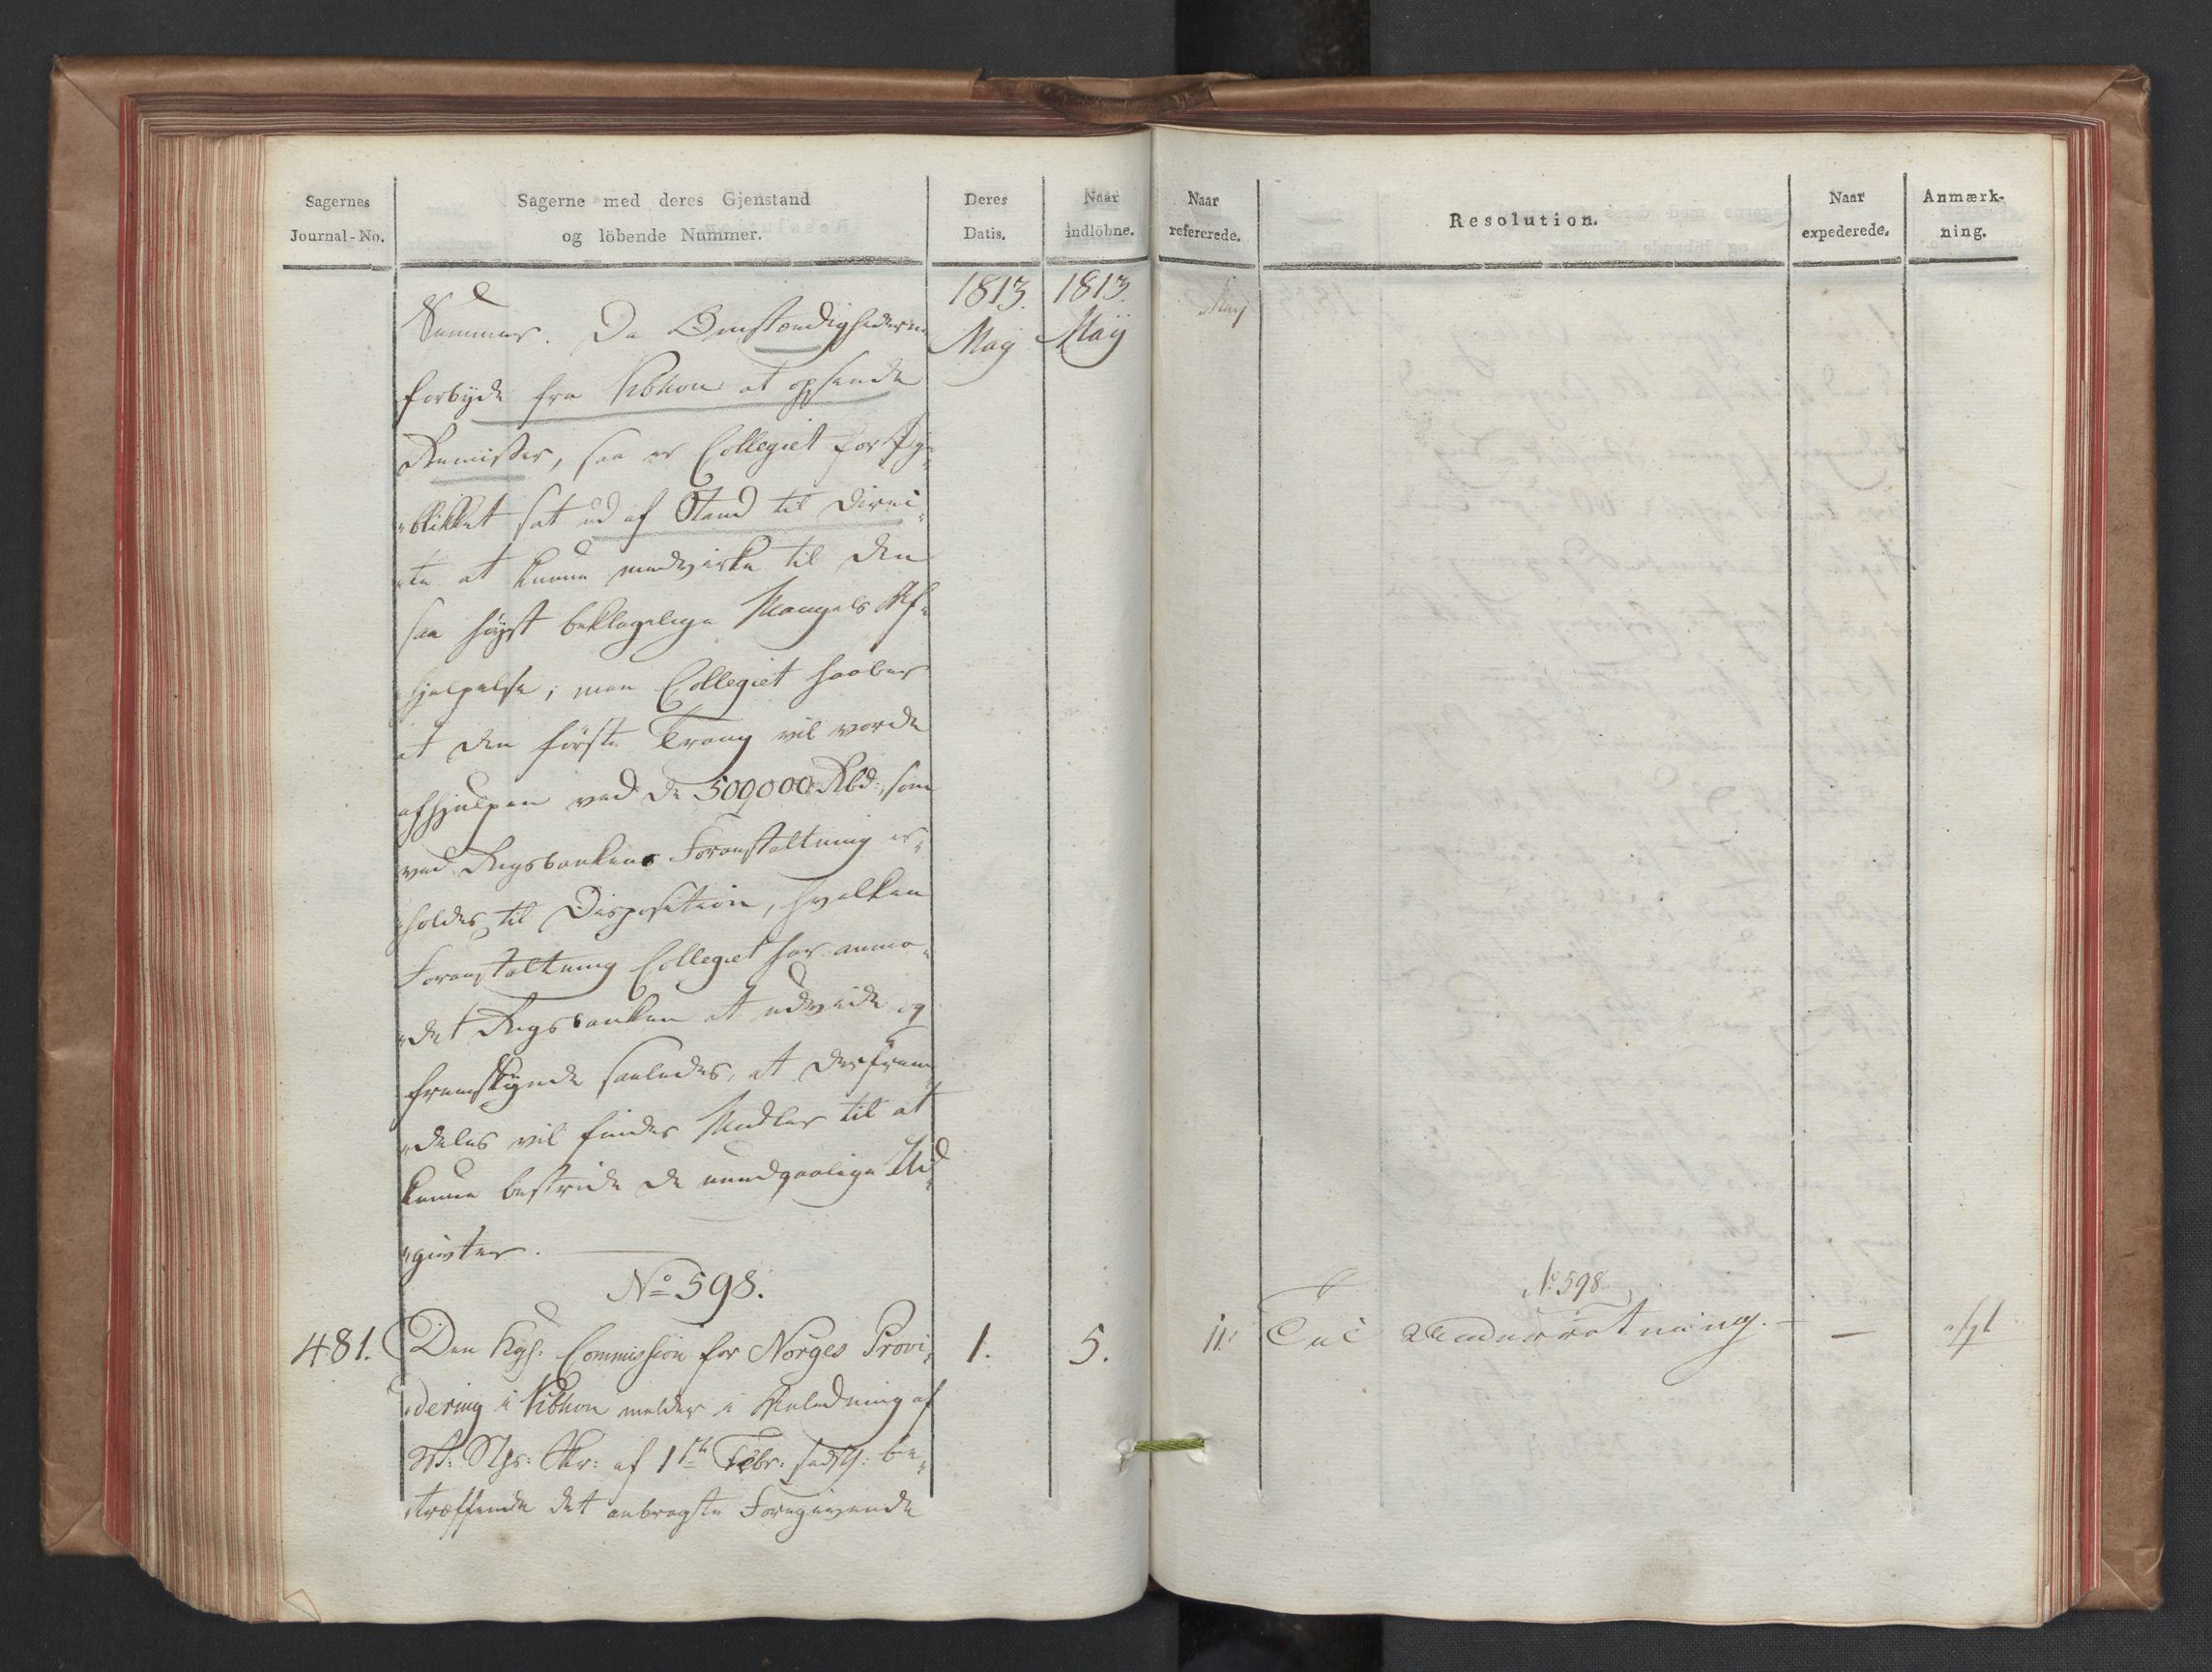 Sagernes
Journal-No.
Sagerne med deres Gjenstand
og löbende Nummer.
Deres
Datis.
Naar
indlöbne.
Naar
refererede.
Resolution.
Naar
expederede.
Anmærk-
ning.
1813.
May
1813.
May
May
Summer. Da Omstændighederne
forbyde fra Kbhvn at opsende
Remisser, saa er Collegiet for Øje-
blikket sat ud af Stand til direc-
te at kunne medvirke til den
saa høyst beklagelige Mangels Af-
hjelpelse; men Collegiet haaber
at den første Trang vil vorde
afhjulpen ved de 500,000 Rbd:, som
ved Rigsbankens Foranstaltning er-
holdes til Disposition, hvilken
Foranstaltning Collegiet har anmo-
det Rigsbanken at udvide og
fremskynde saaledes, at derfrem-
deles vil findes Midler til at
kunne bestride de uundgaaelige Ud-
givter.
No 598.
481.
Den Kgl: Commission for Norges Provi-
dering i Kbhvn melder i Anledning af
Skr: af 1ste Febr: be-
træffende det anbragte Foregivende
1.
5.
11.
No 598
Til Underretning. —
—